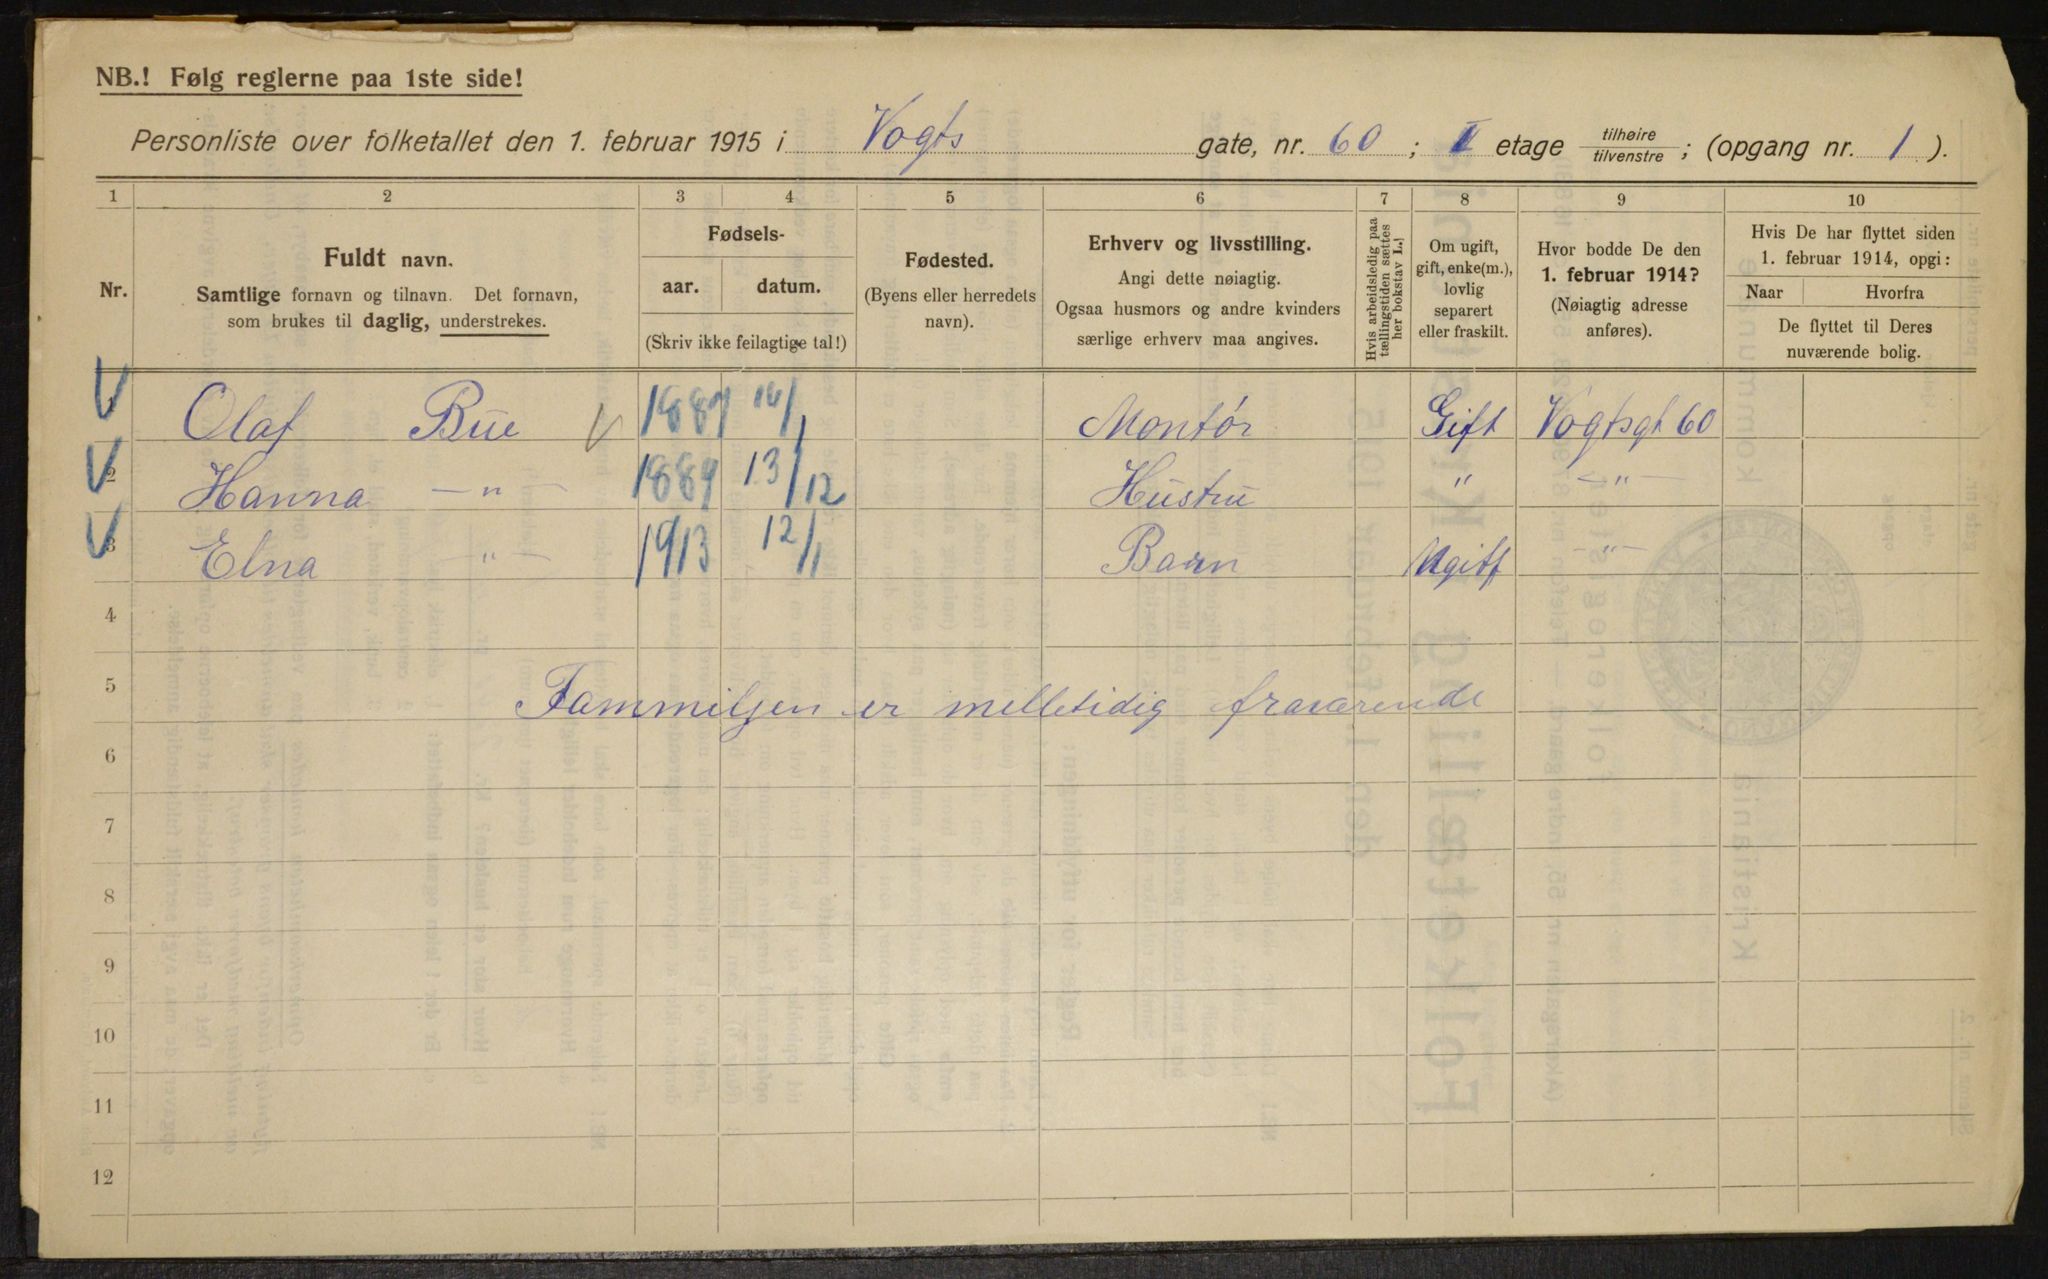 NB.! Følg reglerne paa 1ste side!
Personliste over folketallet den 1. februar 1915 i Vogts gate, nr. 60 ; I etage tilhøire / tilvenstre ; (opgang nr. 1 ).
1 2 3 4 5 6 7 8 9 10
Nr.
Fuldt navn.
Samtlige fornavn og tilnavn. Det fornavn,
som brukes til daglig, understrekes.
Fødsels-
aar. datum.
(Skriv ikke feilagtige tal!)
Fødested.
(Byens eller herredets
navn).
Erhverv og livsstilling.
Angi dette nøiagtig.
Ogsaa husmors og andre kvinders
særlige erhverv maa angives.
Hvis arbeidsledig paa
tællingstiden sættes
her bokstav L.!
Om ugift,
gift, enke(m.),
lovlig
separert
eller fraskilt.
Hvor bodde De den
1. februar 1914?
(Nøiagtig adresse
anføres).
Hvis De har flyttet siden
1. februar 1914, opgi:
Naar Hvorfra
De flyttet til Deres
nuværende bolig.
Olaf Bue 1887 Montør Gift Vogtsgt 60
2 Hanna —"— 1889 13/12 Hustru " —"—
3 Elna —"— 1913 12/1 Barn Ugift —"—
4
5 Fammiljen er melletidig fraværende
6
7
8
9
10
11
12